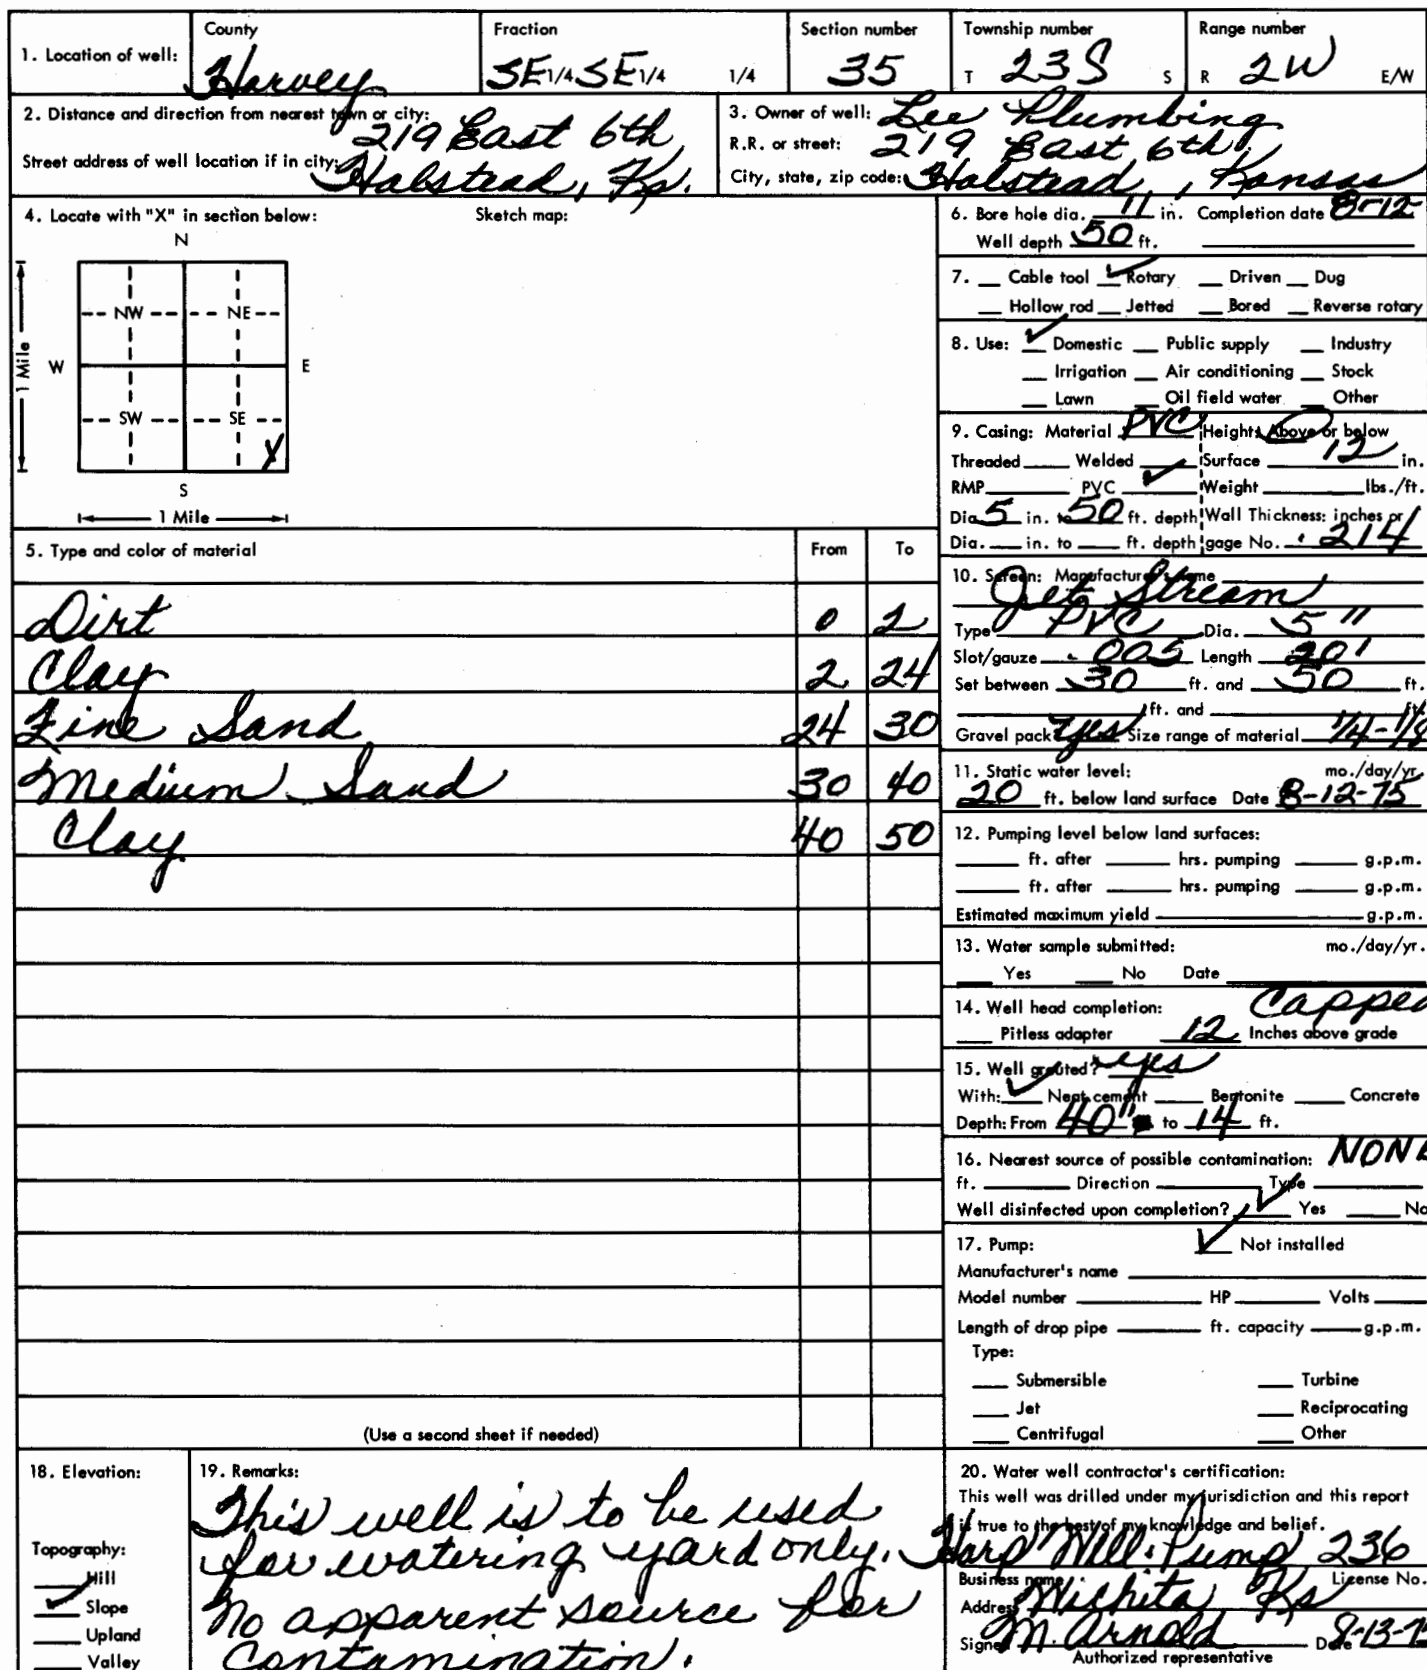 County Fraction Section number Township number Range number
1. Location of well: Harvey SE 1/4 SE 1/4 1/4 35 T 23S S R 2W E/W
2. Distance and direction from nearest town or city: 219 East 6th
Street address of well location if in city: Halstead, Ks.
3. Owner of well: Lee Plumbing
R.R. or street: 219 East 6th
City, state, zip code: Halstead, Kansas
4. Locate with "X" in section below: Sketch map:
N
NW NE
W E
SW SE
X
S
1 Mile
1 Mile
5. Type and color of material From To
Dirt 0 2
Clay 2 24
Fine Sand 24 30
Medium Sand 30 40
Clay 40 50
(Use a second sheet if needed)
6. Bore hole dia. 11 in. Completion date 8-12
Well depth 50 ft.
7. Cable tool ✓ Rotary Driven Dug
Hollow rod Jetted Bored Reverse rotary
8. Use: ✓ Domestic Public supply Industry
Irrigation Air conditioning Stock
Lawn Oil field water Other
9. Casing: Material PVC Height: Above or below
Threaded Welded Surface 12 in.
RMP PVC ✓ Weight lbs./ft.
Dia. 5 in. to 50 ft. depth Wall Thickness: inches or
Dia. in. to ft. depth gage No. .214
10. Screen: Manufacturer's name
Jet Stream
Type PVC Dia. 5"
Slot/gauze .005 Length 20'
Set between 30 ft. and 50 ft.
ft. and ft.
Gravel pack? yes Size range of material 1/4-1/8
11. Static water level: mo./day/yr.
20 ft. below land surface Date 8-12-75
12. Pumping level below land surfaces:
ft. after hrs. pumping g.p.m.
ft. after hrs. pumping g.p.m.
Estimated maximum yield g.p.m.
13. Water sample submitted: mo./day/yr.
Yes No Date
14. Well head completion: Capped
Pitless adapter 12 Inches above grade
15. Well grouted? yes
With: ✓ Neat cement Bentonite Concrete
Depth: From 40" to 14 ft.
16. Nearest source of possible contamination: NONE
ft. Direction Type
Well disinfected upon completion? ✓ Yes No
17. Pump: ✓ Not installed
Manufacturer's name
Model number HP Volts
Length of drop pipe ft. capacity g.p.m.
Type:
Submersible Turbine
Jet Reciprocating
Centrifugal Other
18. Elevation:
Topography:
Hill
✓ Slope
Upland
Valley
19. Remarks:
This well is to be used
for watering yard only.
No apparent source for
Contamination.
20. Water well contractor's certification:
This well was drilled under my jurisdiction and this report
is true to the best of my knowledge and belief.
Harp Well & Pump 236
Business name License No.
Address Wichita Ks
Signed M. Arnold Date 8-13-75
Authorized representative